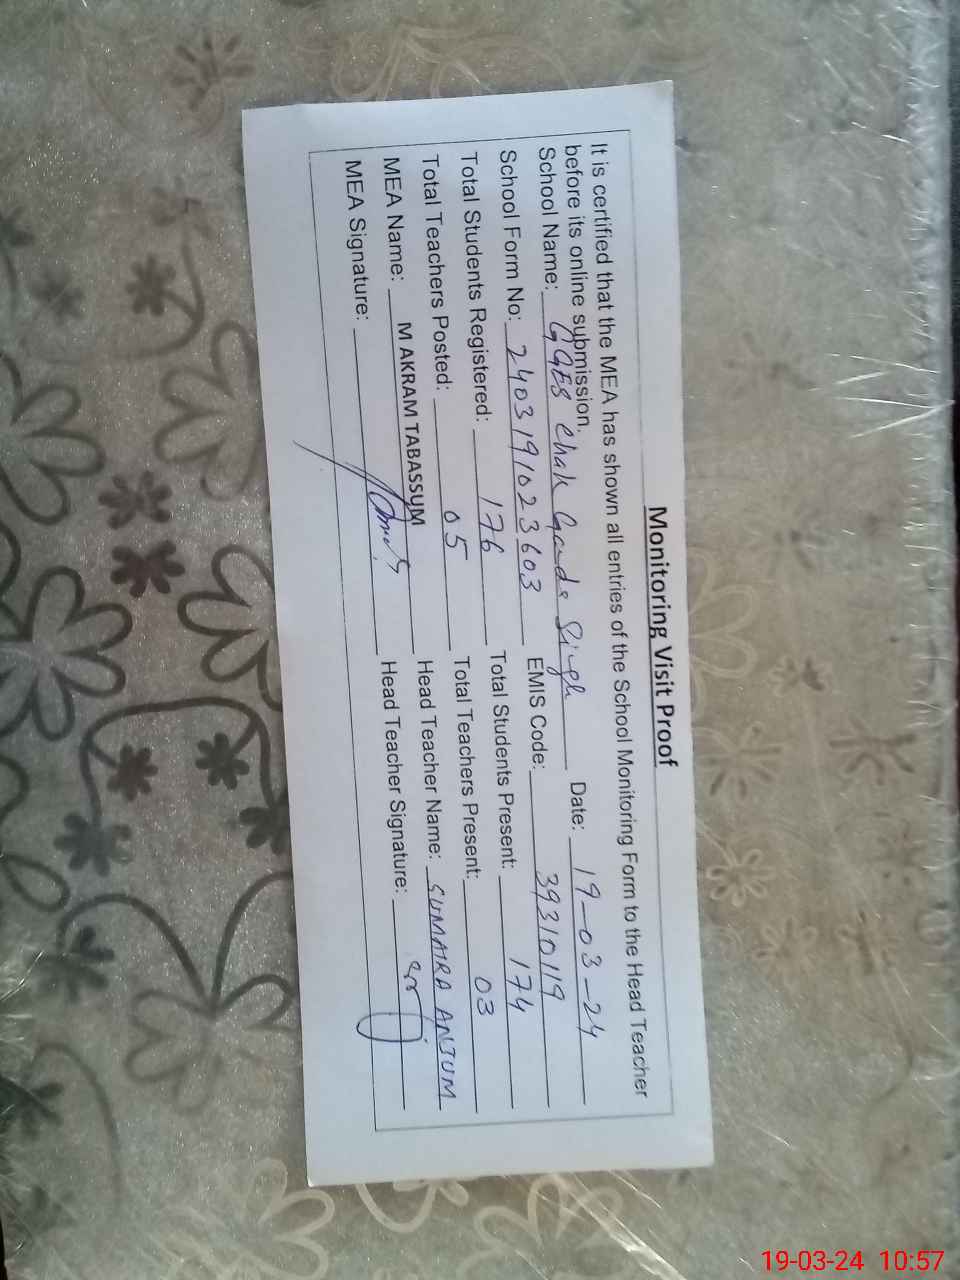 Monitoring Visit Proof
It is certified that the MEA has shown all entries of the School Monitoring Form to the Head Teacher
before its online submission.
School Name: GGES Chak Ganda Singh Date: 19-03-24
School Form No: 2403191023603 EMIS Code: 39310119
Total Students Registered: 176 Total Students Present: 174
Total Teachers Posted: 05 Total Teachers Present: 03
MEA Name: M AKRAM TABASSUM Head Teacher Name: SUMAIRA ANJUM
MEA Signature: Head Teacher Signature:
19-03-24 10:57